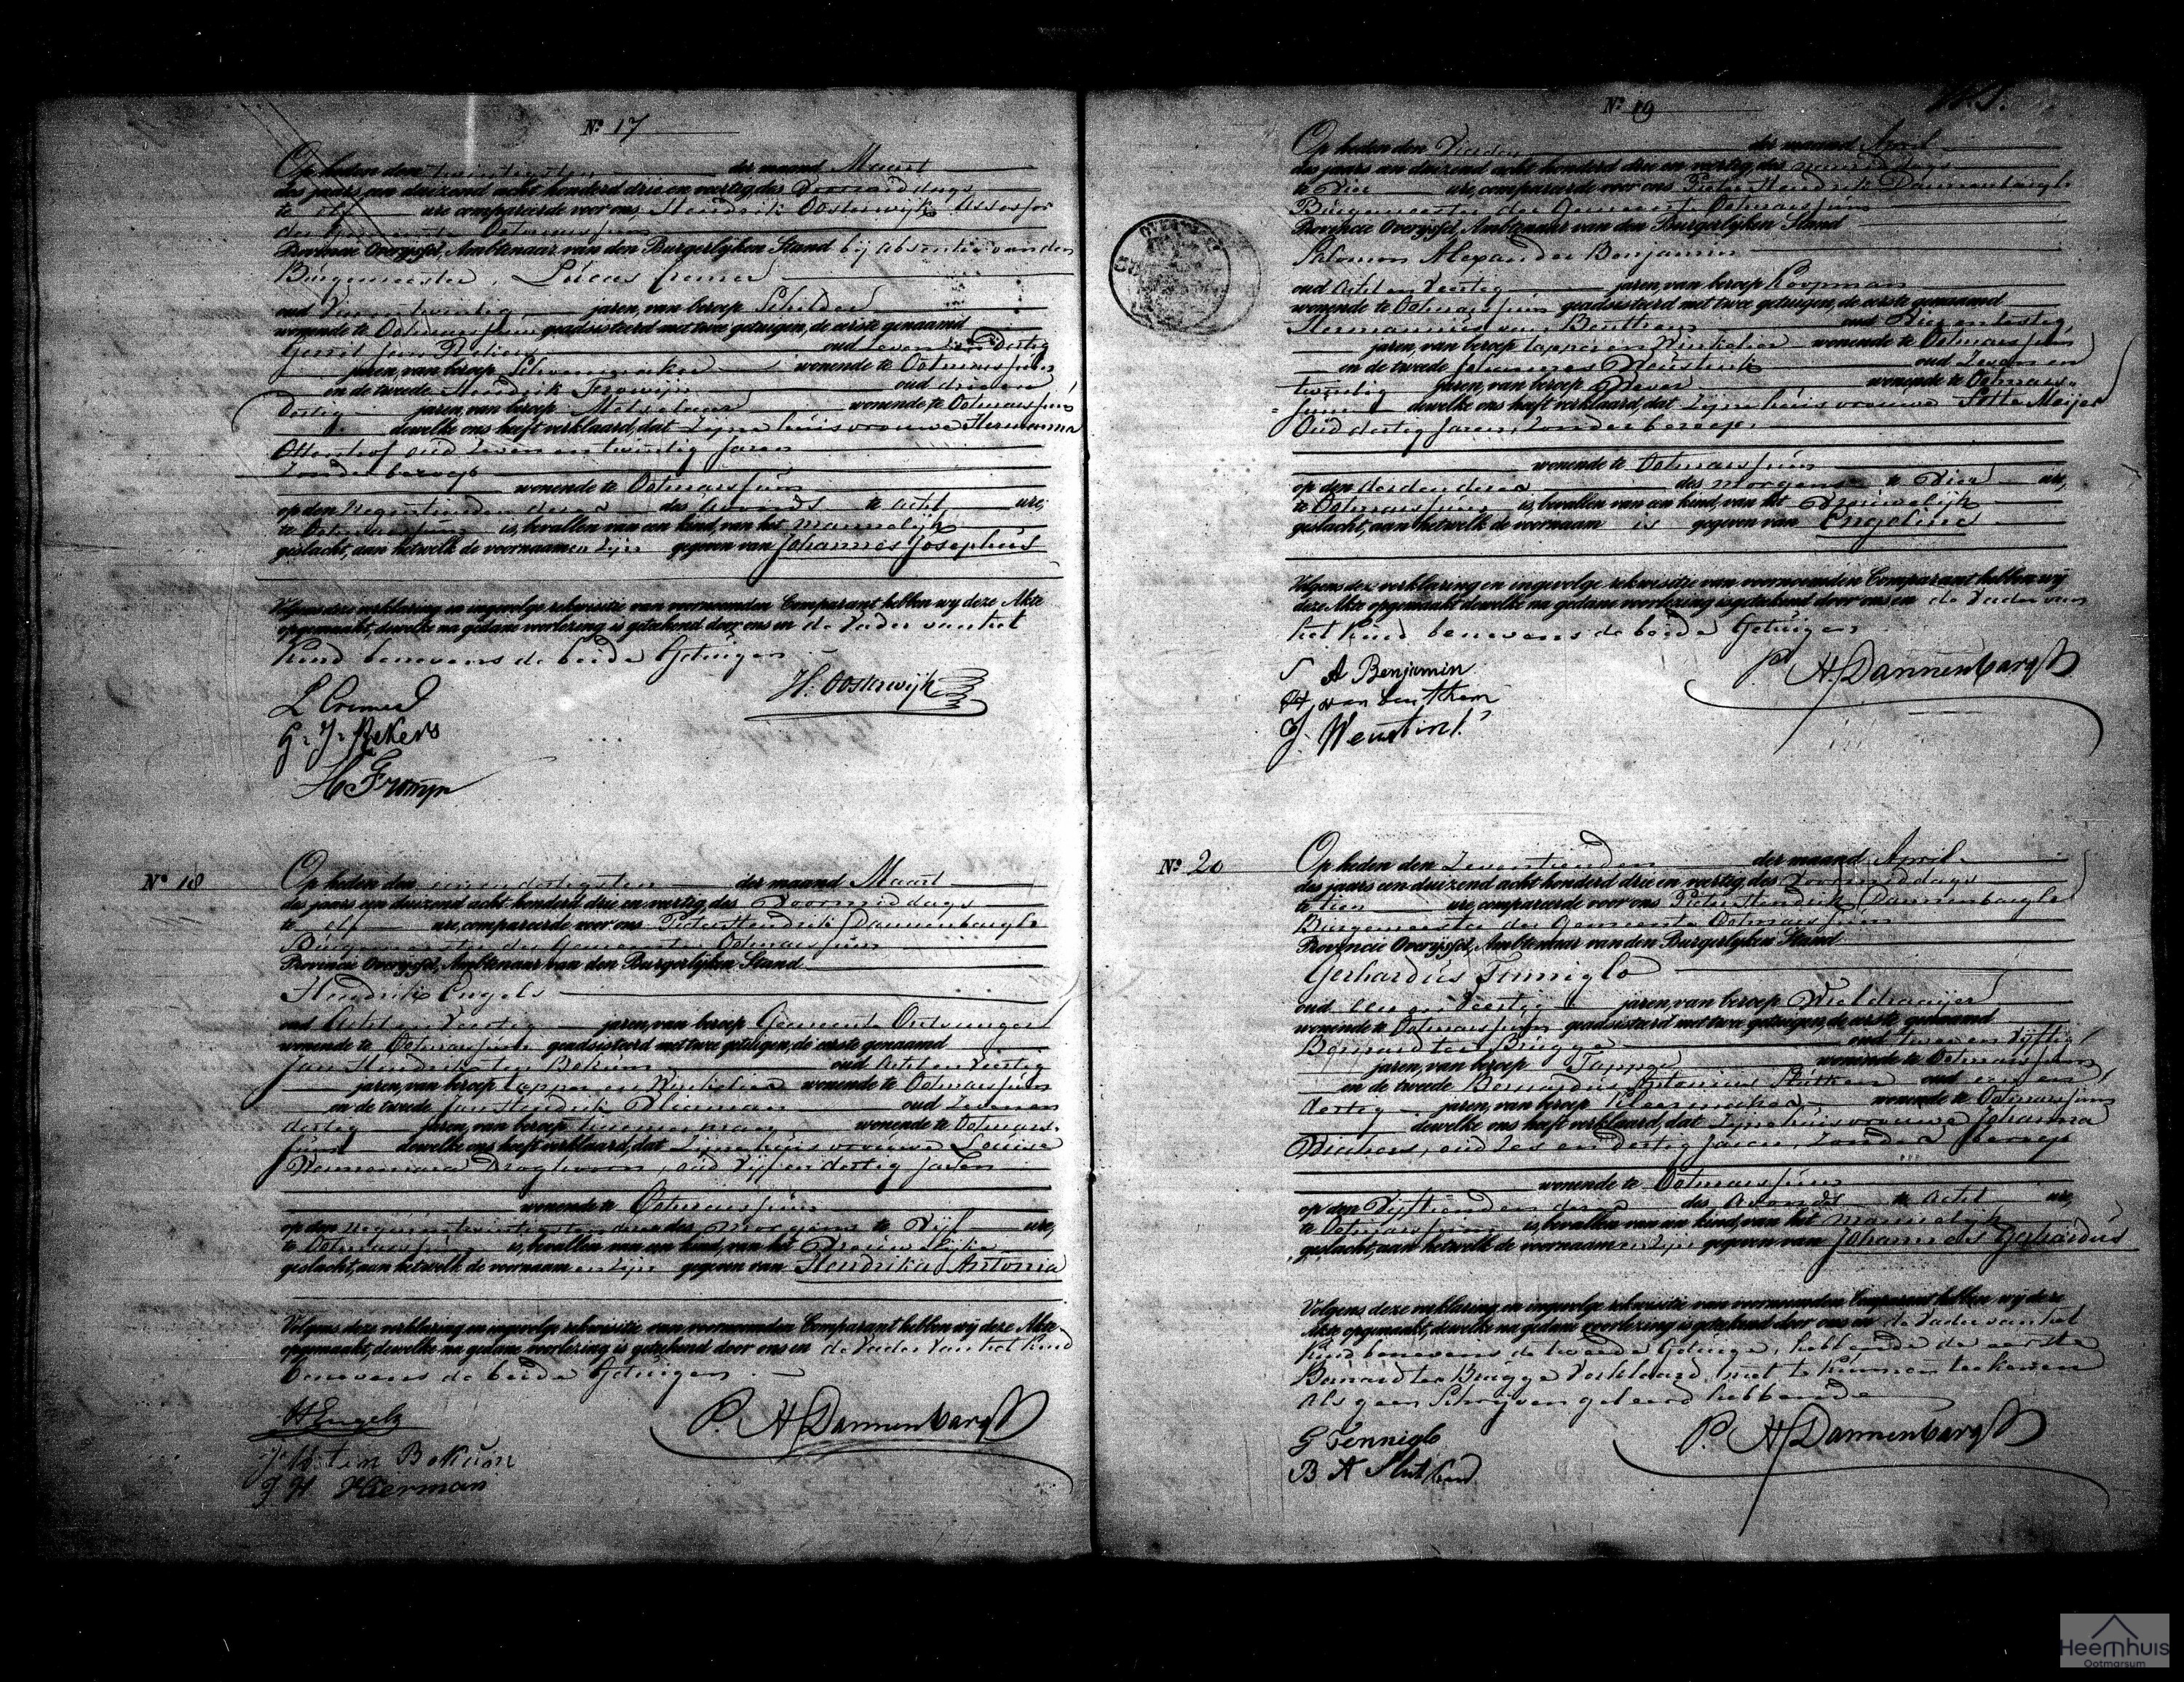 Nº 17
Op heden den twintigsten der maand Maart
des jaars een duizend acht honderd drie en veertig, des Voormiddags
te elf ure compareerde voor ons, Hendrik Oosterwijk Assessor
der Gemeente Ootmarssum
Provincie Overijssel, Ambtenaar van den Burgerlijken Stand bij absentie van den
Burgemeester, Lucas Cremer
oud jaren, van beroep Schilder
wonende te Ootmarssum geadsisteerd met twee getuigen, de eerste genaamd
Gerrit Jan oud zeven en dertig
jaren, van beroep Schoenmaker wonende te Ootmarssum
en de tweede Hendrik oud drie en
dertig jaren, van beroep Metselaar wonende te Ootmarssum
dewelke ons heeft verklaard, dat zijne huisvrouwe Hermanna
Ottenhof oud zeven en twintig Jaren
Zonder beroep
wonende te Ootmarssum
op den Negentienden dezer des Avonds te acht ure,
te Ootmarssum is bevallen van een kind, van het Mannelijk
geslacht, aan hetwelk de voornaamen zijn gegeven van Johannes Josephus
Volgens deze verklaring en ingevolge rekwisitie van voornoemden Comparant hebben wy deze Akte
opgemaakt, dewelke na gedane voorlezing is getekend door ons en de Vader van het
Kind benevens de beide Getuigen
H. Oosterwijk
L Cremer
G. J. Rekers
H Fromijn
Nº 18
Op heden den een en dertigsten der maand Maart
des jaars een duizend acht honderd drie en veertig, des Voormiddags
te elf ure, compareerde voor ons Pieter Hendrik Dannenbargh
Burgemeester der Gemeente Ootmarssum
Provincie Overijssel, Ambtenaar van den Burgerlijken Stand
Hendrik Engels
oud Acht en Veertig jaren, van beroep Gemeente Ontvanger
wonende te Ootmarssum geadsisteerd met twee getuigen, de eerste genaamd
Jan Hendrik ten Bokum oud Acht en Veertig
jaren, van beroep tapper en Winkelier wonende te Ootmarssum
en de tweede Jan Hendrik oud Zeven en
dertig jaren, van beroep wonende te Ootmars-
sum dewelke ons heeft verklaard, dat Zijne huisvrouwe Louise
oud Vijf en dertig Jaren
wonende te Ootmarssum
op den negen en twintigsten dezer des morgens te Vijf ure,
te Ootmarssum is bevallen van een kind, van het Vrouwelijk
geslacht, aan hetwelk de voornaamen zijn gegeven van Hendrika Antonia
Volgens deze verklaring en ingevolge rekwisitie van voornoemden Comparant hebben wij deze Akte
opgemaakt, dewelke na gedane voorlezing is getekend door ons en de Vader van het Kind
benevens de beide Getuigen
P. H Dannenbargh
H Engels
J H ten Bokum
Nº 19
Op heden den Vierden der maand April
des jaars een duizend acht honderd drie en veertig, des namiddags
te Vier ure, compareerde voor ons Pieter Hendrik Dannenbargh
Burgemeester der Gemeente Ootmarssum
Provincie Overijssel, Ambtenaar van den Burgerlijken Stand
Salomon Alexander Benjamin
oud Acht en Veertig jaren, van beroep Koopman
wonende te Ootmarssum geadsisteerd met twee getuigen, de eerste genaamd
Hermannus van Benthem oud
jaren, van beroep tapper en Winkelier wonende te Ootmarssum
en de tweede Johannes Weustink oud Zeven en
twintig jaren, van beroep Wever wonende te Ootmars-
sum dewelke ons heeft verklaard, dat Zijne huisvrouwe Sette Meijer
Oud dertig Jaren, Zonder beroep
wonende te Ootmarssum
op den derden dezer des Morgens te Vier ure,
te Ootmarssum is bevallen van een kind, van het Vrouwelijk
geslacht, aan hetwelk de voornaam is gegeven van Engeline
Volgens deze verklaring en ingevolge rekwisitie van voornoemden Comparant hebben wij
deze Akte opgemaakt dewelke na gedane voorlezing is getekend door ons en de Vader van
het Kind benevens de beide Getuigen
P. H Dannenbargh
S A Benjamin
H, van benthem
J. Weustink
Nº 20
Op heden den Zeventienden der maand April
des jaars een duizend acht honderd drie en veertig, des Voormiddags
te tien ure, compareerde voor ons Pieter Hendrik Dannenbargh
Burgemeester der Gemeente Ootmarssum
Provincie Overijssel, Ambtenaar van den Burgerlijken Stand
Gerhardus Tenniglo
oud Een en Veertig jaren, van beroep Wieldraaijer
wonende te Ootmarssum geadsisteerd met twee getuigen, de eerste genaamd
Bernard ter Brugge oud twee en Vijftig
jaren, van beroep Tapper wonende te Ootmarssum
en de tweede Bernardus Antonius oud een en
dertig jaren, van beroep Kleermaker wonende te Ootmarssum
dewelke ons heeft verklaard, dat Zijne huisvrouwe Johanna
oud Zes en dertig Jaren, Zonder beroep
wonende te Ootmarssum
op den Vijftienden dezer des Avonds te Acht ure,
te Ootmarssum is bevallen van een kind, van het Mannelijk
geslacht, aan hetwelk de voornaamen zijn gegeven van Johannes Gerhardus
Volgens deze verklaring en ingevolge rekwisitie van voornoemden Comparant hebben wy deze
Akte opgemaakt, dewelke na gedane voorlezing is getekend door ons en de Vader van het
Kind benevens de tweede Getuige, hebbende de eerste
Bernard ter Brugge Verklaard niet te kunnen teekenen
Als geen Schrijven geleerd hebbende
P. H Dannenbargh
G Tenniglo
B A
Heemhuis
Ootmarsum